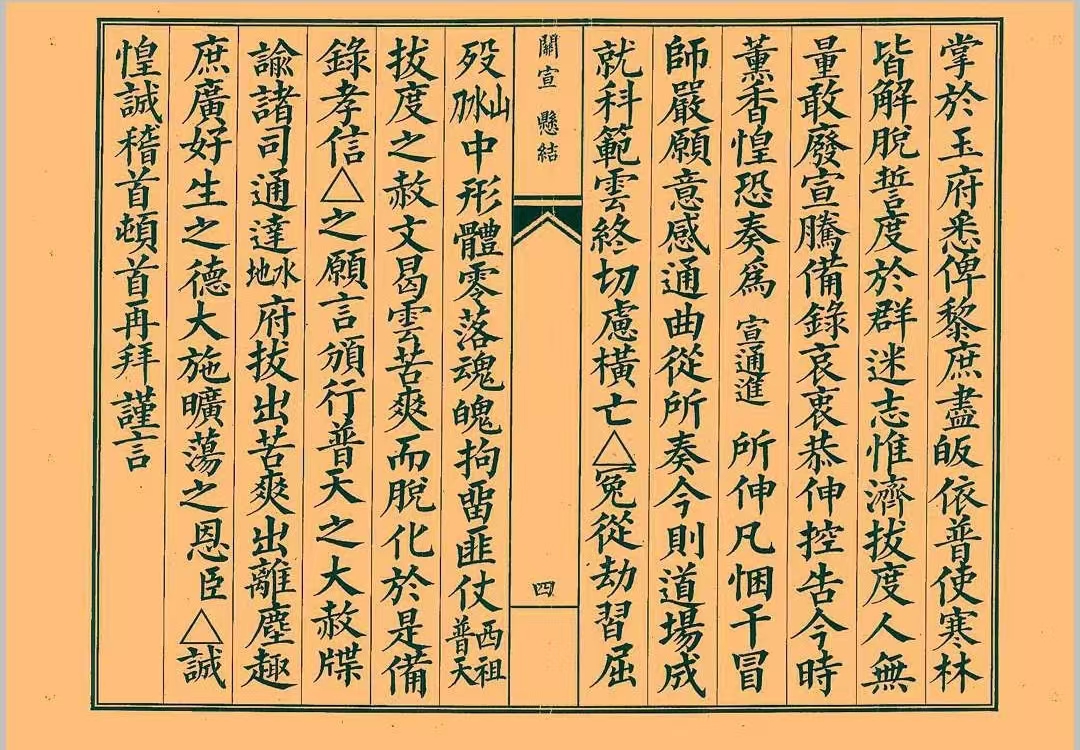 掌於玉府悉俾黎庶盡皈依普使寒林
皆解脫誓度於群迷志惟濟拔度人無
量敢廢宣騰備錄哀衷恭伸控告今時
薰香惶恐奏為 宣通進 所伸凡悃干冒
師嚴願意感通曲從所奏今則道場成
就科範雲終切慮橫亡△冤從劫習屈
關宣 懸結 四
歿山水刀中形體零落魂魄拘留匪仗西祖普天
拔度之赦文曷雲苦爽而脫化於是備
錄孝信△之願言頒行普天之大赦牒
諭諸司通達水地府拔出苦爽出離塵趣
庶廣好生之德大施曠蕩之恩臣△誠
惶誠稽首頓首再拜謹言